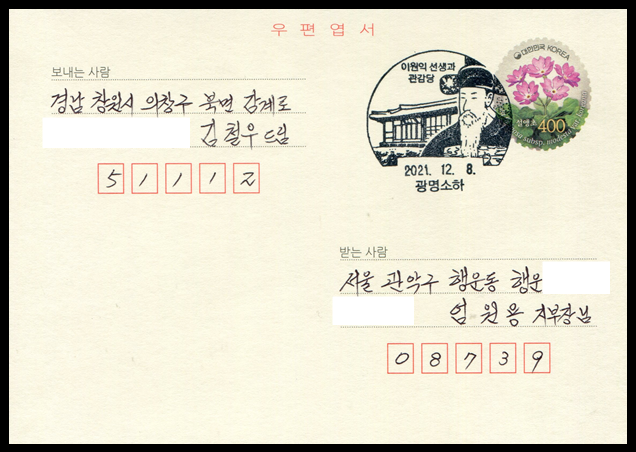 우편엽서
보내는 사람
경남 창원시 의창구 북면 감계로
김철우 드림
51112
이원익 선생과
관감당
2021. 12. 8.
광명소하
대한민국 KOREA
설앵초 400
받는 사람
서울 관악구 행운동 행운
엄원용 지부장님
08739